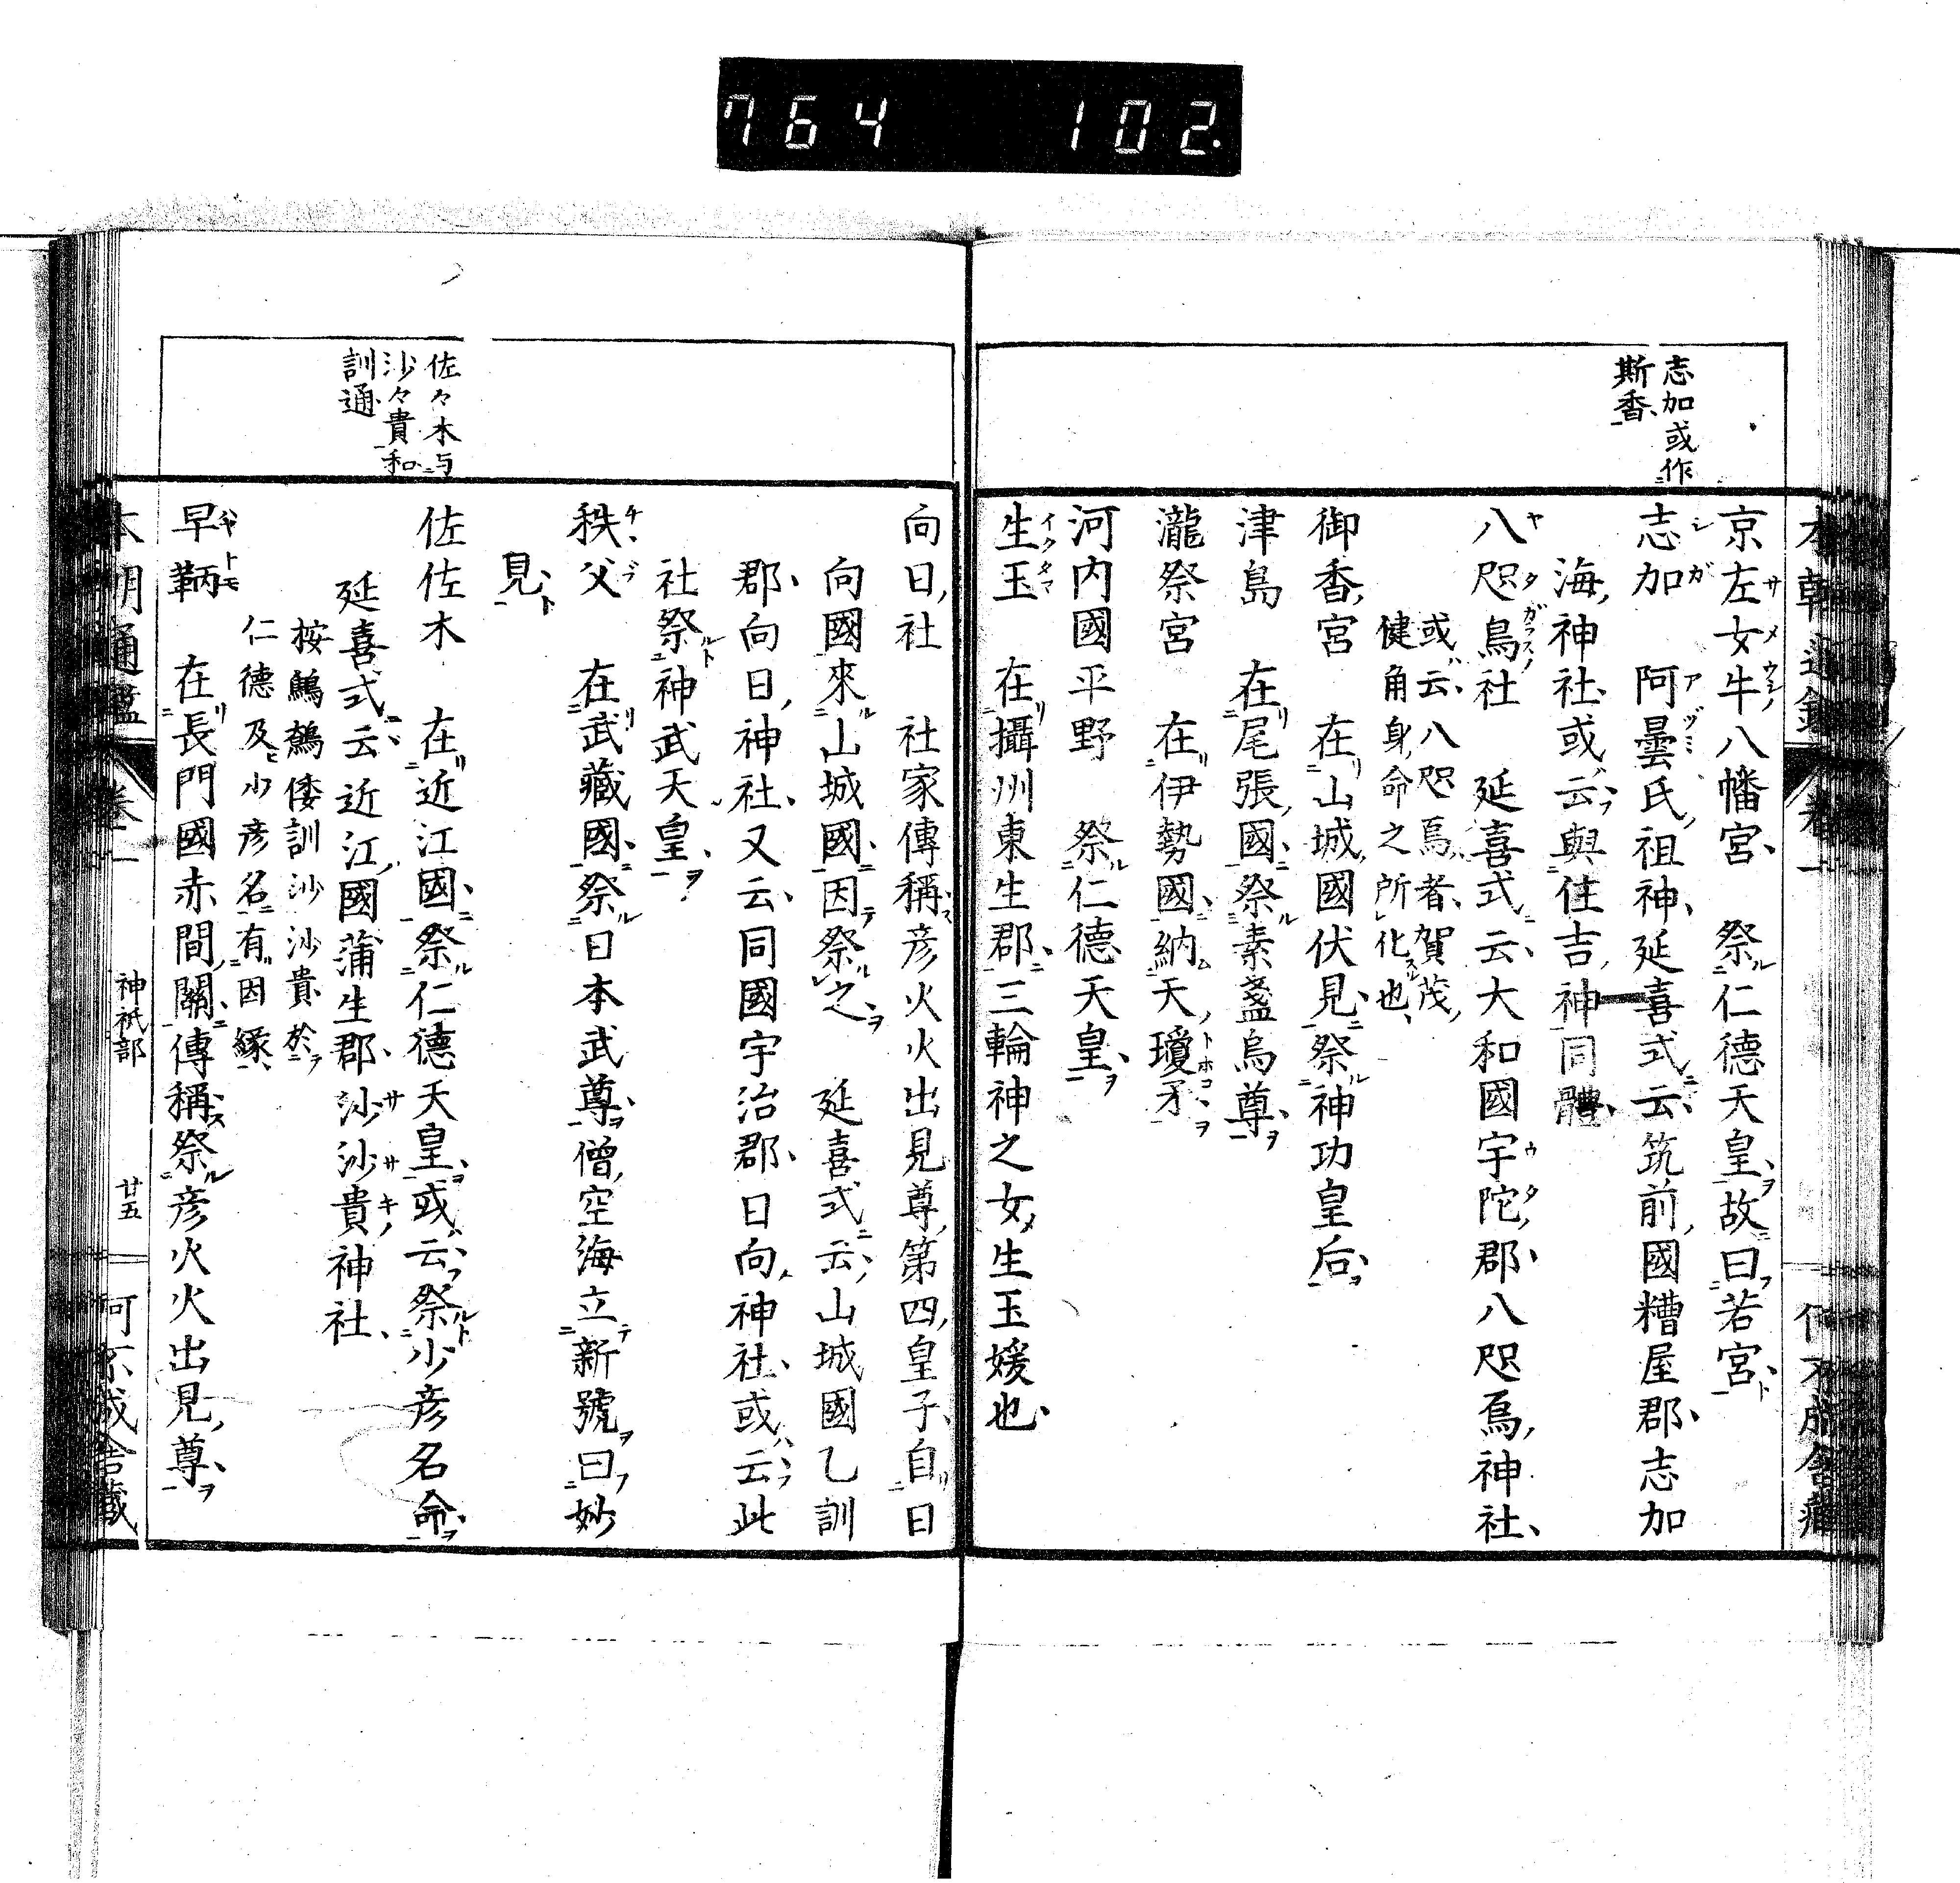 764 102.
志加或作
斯香
京左女牛八幡宮 祭仁德天皇故曰若宮
志加 阿曇氏祖神延喜式云筑前國糟屋郡志加
海神社或云與住吉神同體
八咫烏社 延喜式云大和國宇陀郡八咫烏神社
或云八咫烏者賀茂
健角身命之所化也
御香宮 在山城國伏見祭神功皇后
津島 在尾張國祭素盞烏尊
瀧祭宮 在伊勢國納天瓊矛
河内國平野 祭仁德天皇
生玉 在攝州東生郡三輪神之女生玉媛也
佐々木与
沙々貴和
訓通
向日社 社家傳稱彦火火出見尊第四皇子自日
向國來山城國因祭之 延喜式云山城國乙訓
郡向日神社又云同國宇治郡日向神社或云此
社祭神武天皇
秩父 在武藏國祭日本武尊僧空海立新號曰妙
見
佐佐木 在近江國祭仁德天皇或云祭少彦名命
延喜式云近江國蒲生郡沙沙貴神社
按鷦鷯倭訓沙沙貴於
仁德及少彦名有因緣
早鞆 在長門國赤間關傳稱祭彦火火出見尊
本朝通鑑 卷一 神祇部 廿五